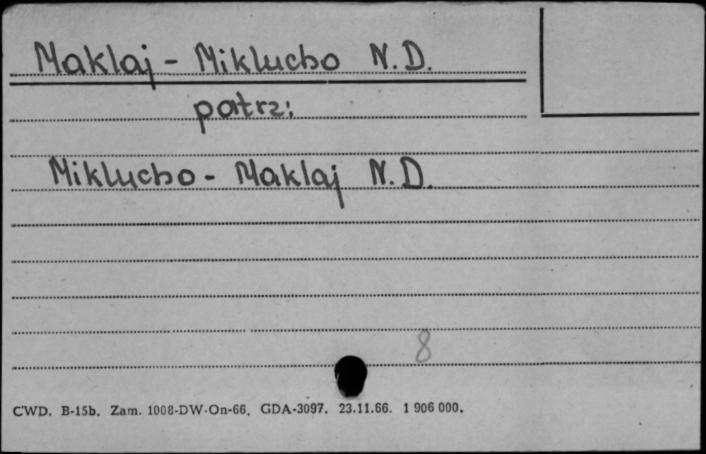 Maklaj - Miklucho N.D.
patrz:
Miklucho - Maklaj N.D.
8
CWD. B-15b. Zam. 1008-DW-On-66. GDA-3097. 23.11.66. 1 906 000.